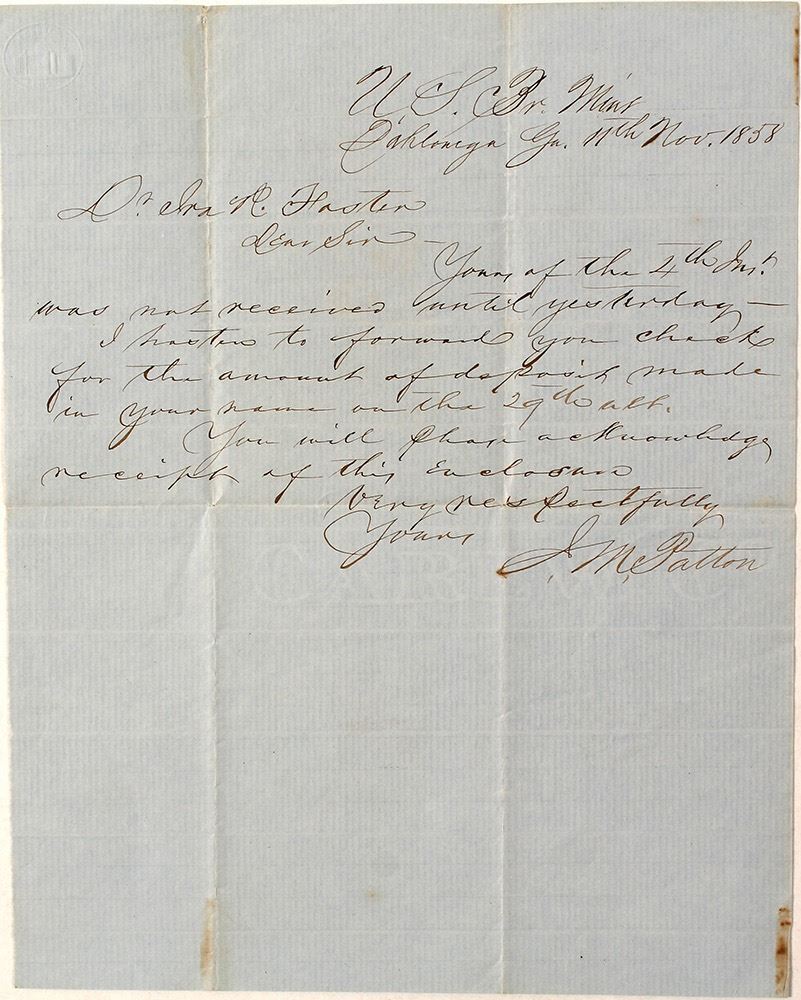 U. S. Br. Mint
Dahlonega Ga. 11th Nov. 1858
Dr Ira R. Foster
Dear Sir –
Yours of the 4th Inst.
was not received until yesterday –
I hasten to forward you check
for the amount of deposit made
in your name on the 29th ult.
You will please acknowledge
receipt of this Enclosure
Very respectfully
Yours
J. M. Patton